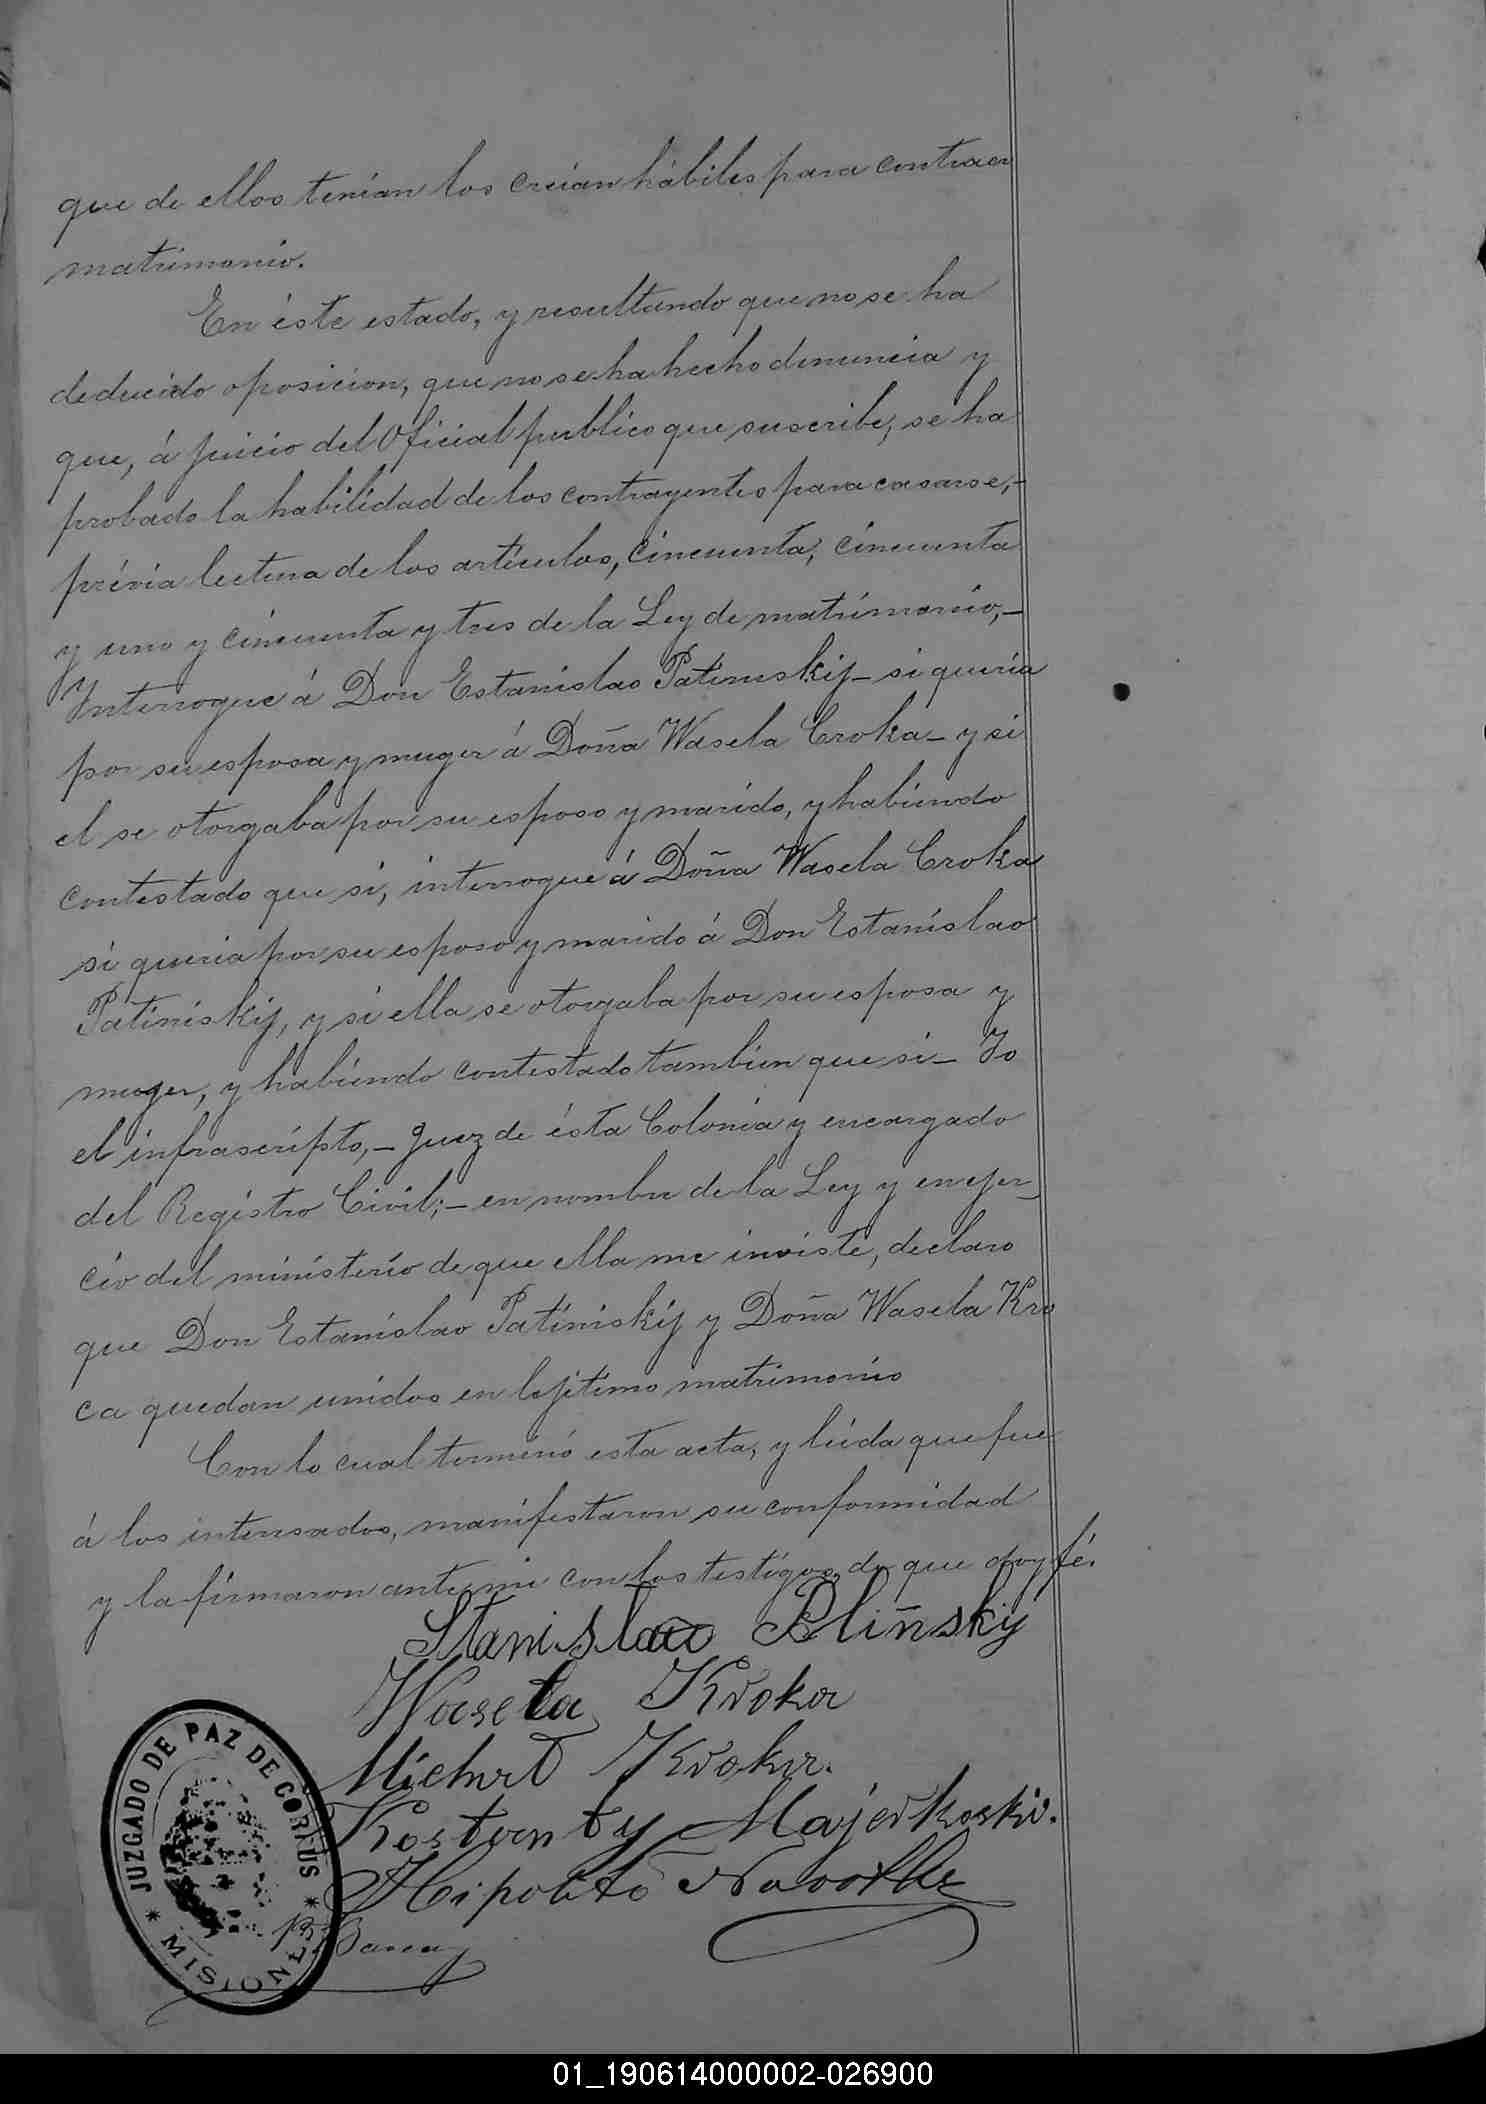 que de ellos tenian los creian hábiles para contraer
matrimonio.
En éste estado, y resultando que no se ha
deducido oposicion, que no se ha hecho denuncia y
que, á juicio del Oficial publico que suscribe, se ha
probado la habilidad de los contrayentes para casarse,-
prévia lectura de los articulos, cincuenta, cincuenta
y uno y cincuenta y tres de la Ley de matrimonio,-
Interrogue á Don Estanislao Patiniskij- si queria
por su esposa y muger á Doña Wasela Croka- y si
el se otorgaba por su esposo y marido, y habiendo
contestado que si, interrogue á Doña Wasela Croka
si queria por su esposo y marido á Don Estanislao
Patiniskij, y si ella se otorgaba por su esposa y
muger, y habiendo contestado tambien que si- Yo
el infrascripto,- Juez de ésta Colonia y encargado
del Registro Civil;- en nombre de la Ley y en ejer
cio del ministerio de que ella me inviste, declaro
que Don Estanislao Patiniskij y Doña Wasela Kro
ca quedan unidos en lejitimo matrimonio
Con lo cual terminó esta acta, y leida que fue
á los interesados, manifestaron su conformidad
y la firmaron ante mi con los testigos, de que doy fé.
Stanislao Bliñskij
Wasela Kroka
Michal Kroka.
Kostanty Majerkoski.
Hipolito
JUZGADO DE PAZ DE CORPUS
* MISIONES *
01_190614000002-026900